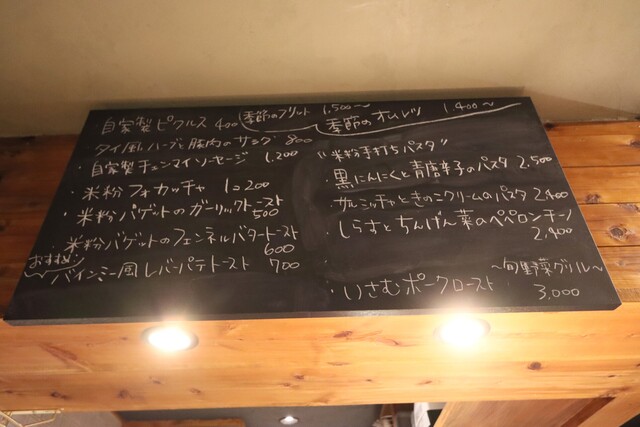 ・自家製ピクルス 400
季節のフリット 1,500〜
季節のオムレツ 1,400〜
タイ風ハーブと豚肉のサラダ 800
・自家製チェンマイソーセージ 1,200
・米粉フォカッチャ 1コ200
・米粉バゲットのガーリックトースト
500
・米粉バゲットのフェンネルバタートースト
600
おすすめ
バインミー風レバーパテトースト 700
"米粉手打ちパスタ"
・黒にんにくと青唐辛子のパスタ 2,500
・サルシッチャときのこクリームのパスタ 2,400
・しらすとちんげん菜のペペロンチーノ
2,400
・いさむポークロースト
〜旬野菜グリル〜
3,000